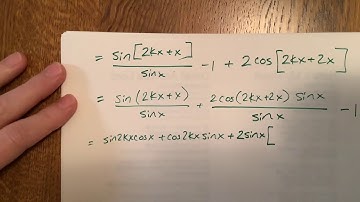 = sin[2kx+x] / sinx - 1 + 2cos[2kx+2x]
= sin(2kx+x) / sinx + 2cos(2kx+2x) sinx / sinx - 1
= sin2kxcosx + cos2kxsinx + 2sinx[